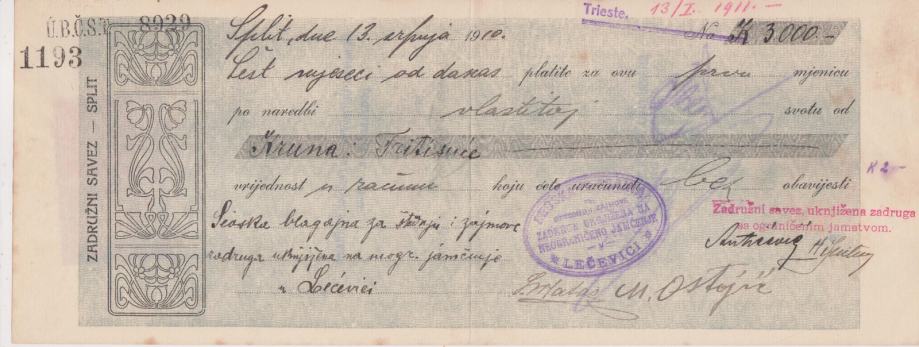 Trieste. 13/I. 1911.-
Ú.B.Č.S.T. 8939
1193
ZADRUŽNI SAVEZ — SPLIT
Split, dne 13. srpnja 1910. Na K 3.000.-
Šest mjeseci od danas platite za ovu prvu mjenicu
po naredbi vlastitoj svotu od
Kruna: Tritisuće
vrijednost u računu koju ćete uračunati bez obavijesti
K 2-
Seoska blagajna za štednju i zajmove
zadruga uknjižena na neogr. jamčenje
u Lećevici
ZADRUGA UKNJIŽENA NA
NEOGRANIČENO JAMČENJE
LEČEVICI
Zadružni savez, uknjižena zadruga
na ograničenim jamstvom.
M. Ostojić